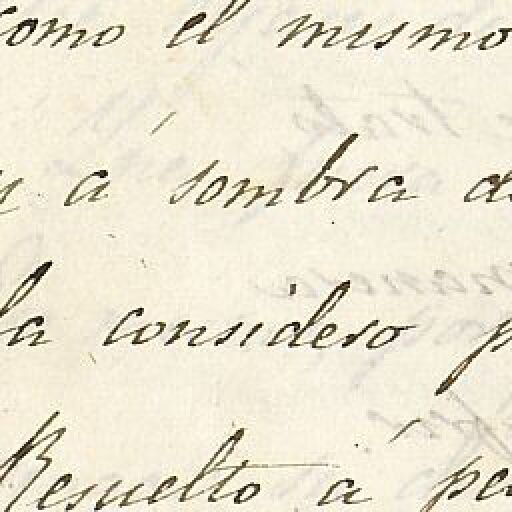 como el mismo
á sombra
la considero
Resuelto á